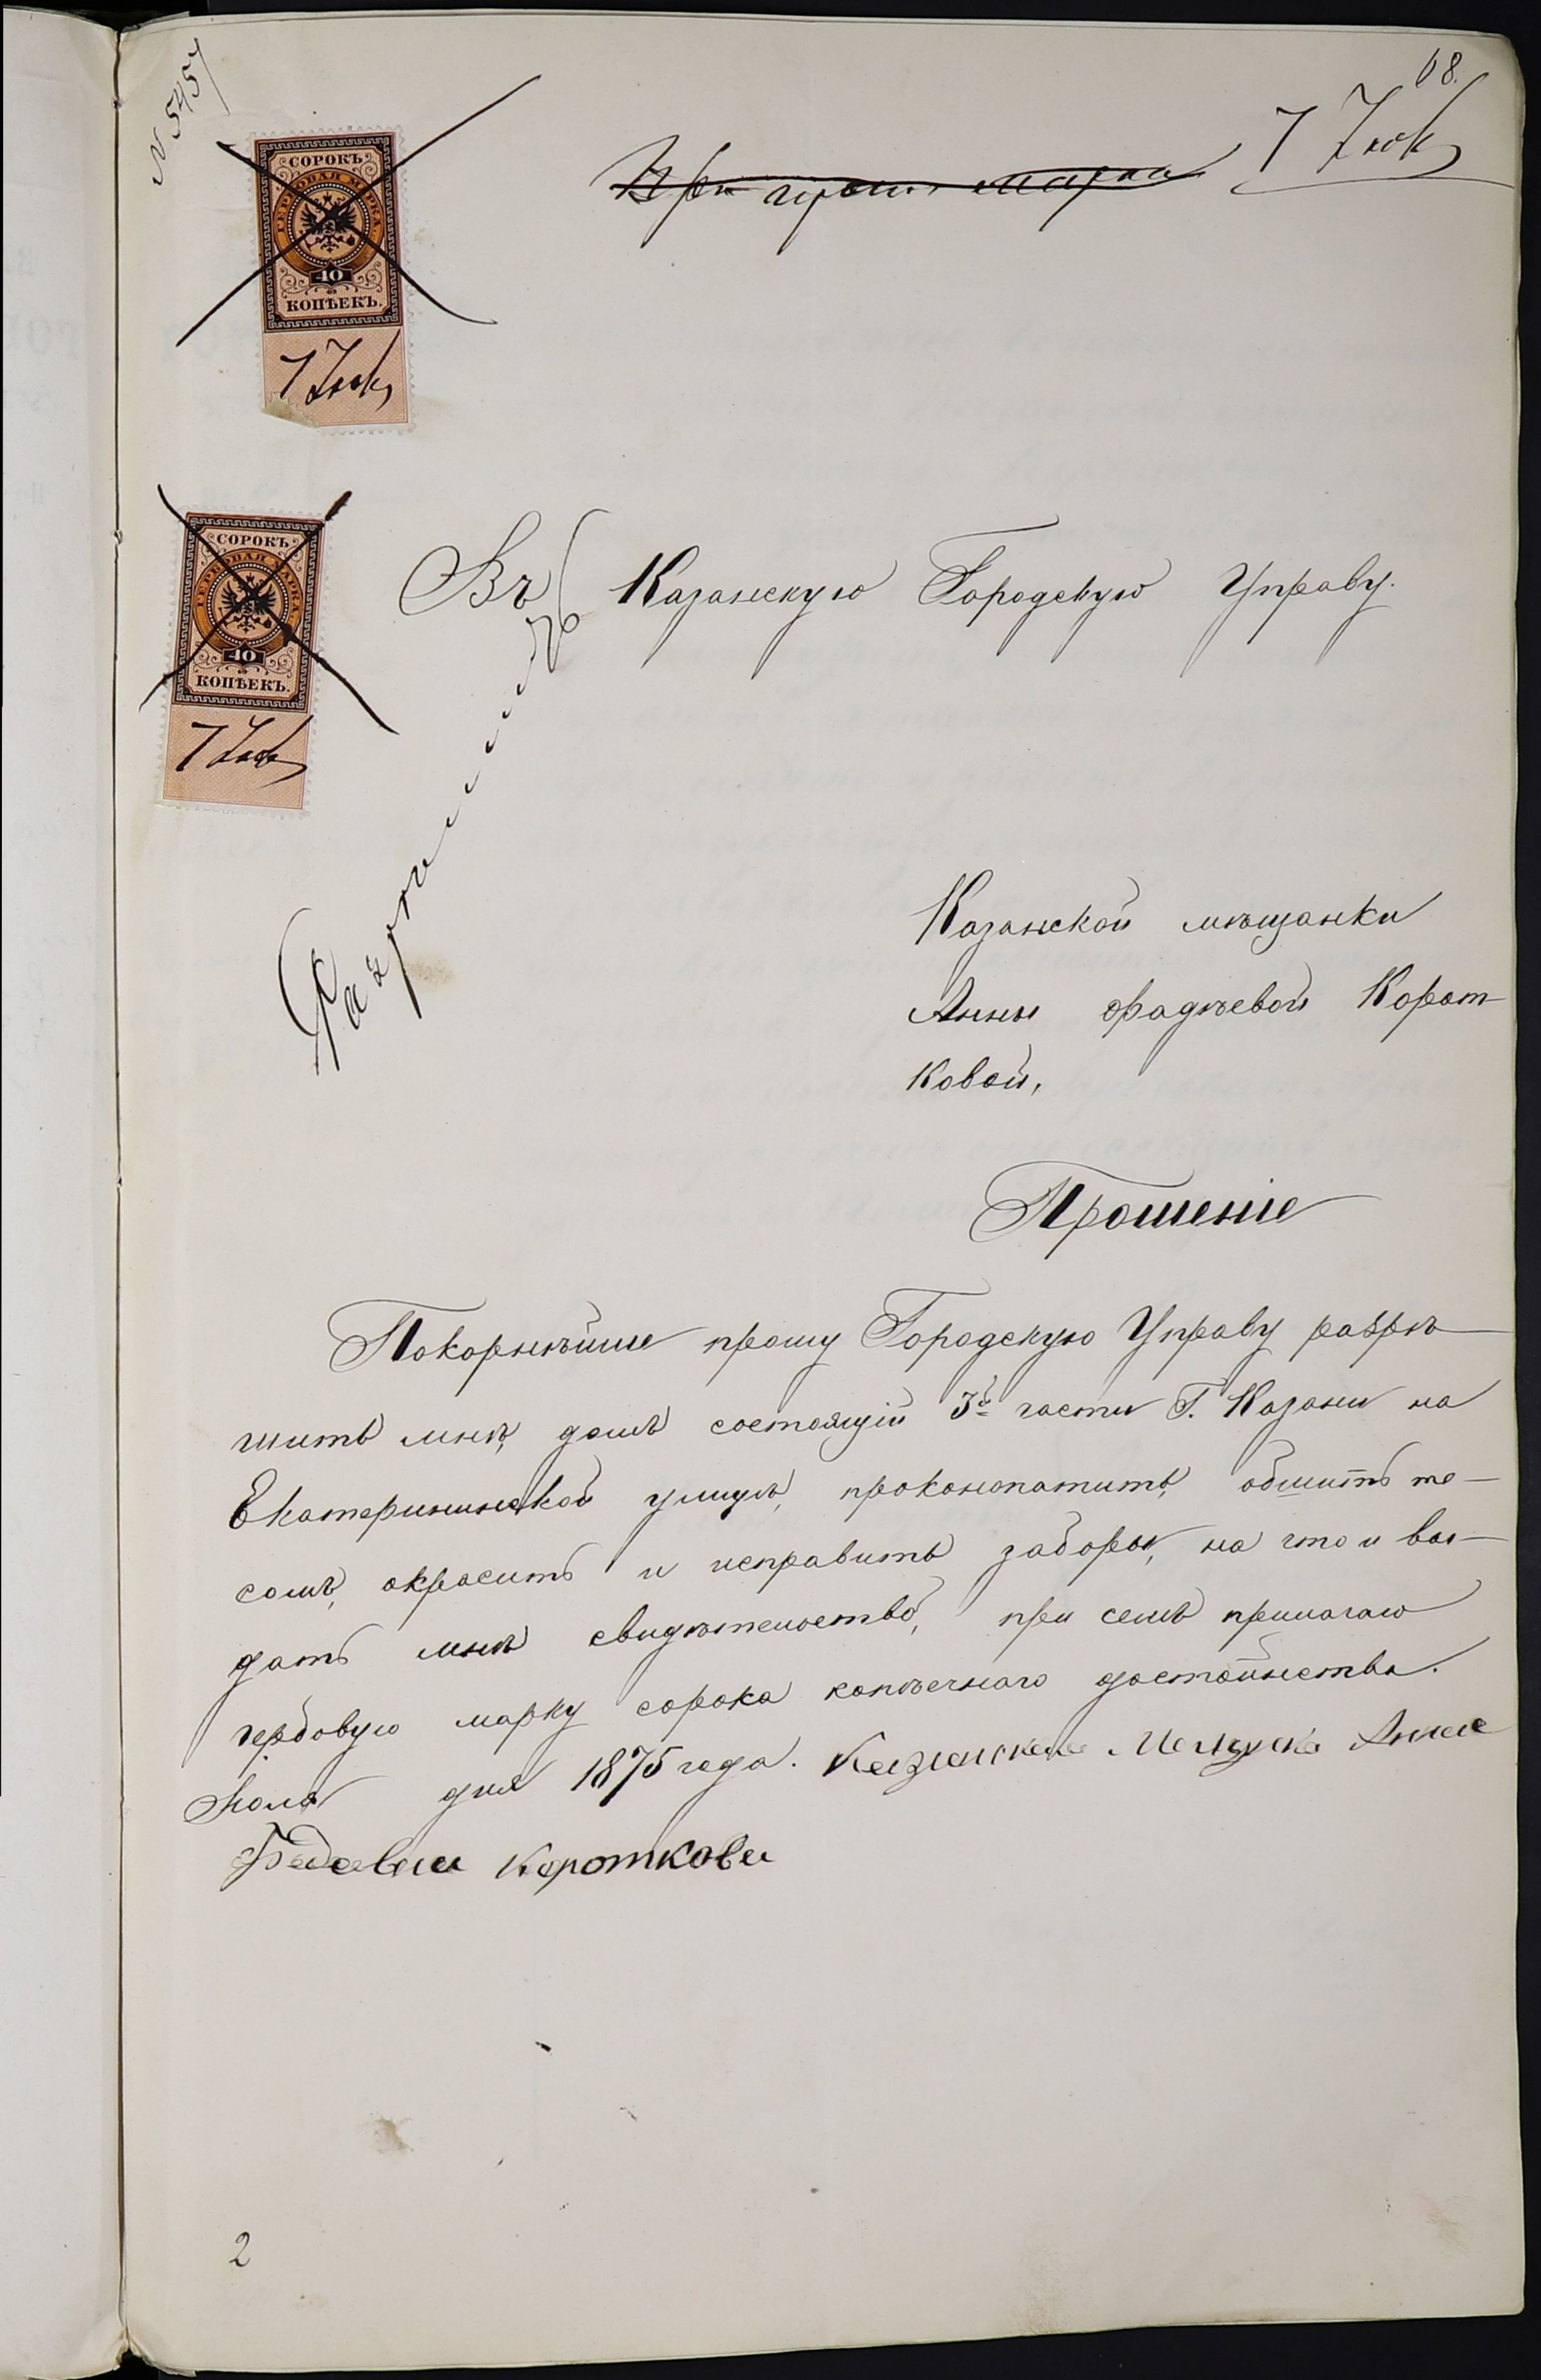 68.
N 5457
7 Іюл
СОРОКЪ
ГЕРБОВАЯ МАРКА
40
КОПѢЕКЪ.
7 Іюл
СОРОКЪ
ГЕРБОВАЯ МАРКА
40
КОПѢЕКЪ.
7 Іюл
Въ Казанскую Городскую Управу.
Разрѣшить
Казанской мѣщанки
Анны Фадѣевой Корот-
ковой,
Прошеніе
Покорнѣйше прошу Городскую Управу разрѣ-
шить мнѣ, домъ состоящій 3й части Г. Казани на
Екатерининской улицѣ, проконопатить, обшить те-
сомъ, окрасить и исправить заборы, на что и вы-
дать мнѣ свидѣтельство, при семъ прилагаю
гербовую марку сорока копѣечнаго достоинства.
Іюля дня 1875 года. Казанская Мещанка Анна
Фадевна Короткова
2